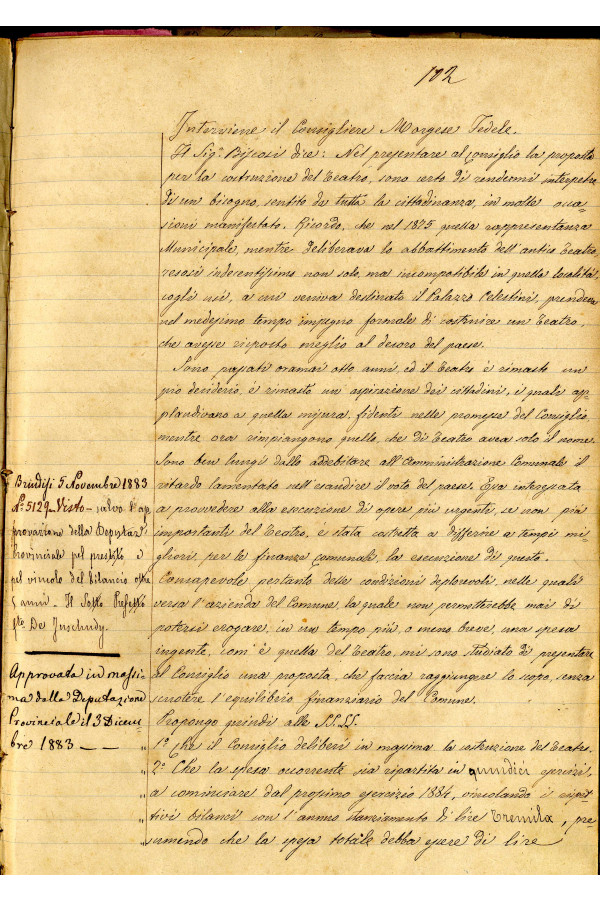 102
Interviene il Consigliere Morgese Fedele.
Il Sig.r Biscosi dice: Nel presentare al Consiglio la proposta
per la costruzione del Teatro, sono certo di rendermi interpetre
di un bisogno, sentito da tutta la cittadinanza, in molte occa-
sioni manifestato. Ricordo, che nel 1875 quella rappresentanza
Municipale, mentre deliberava lo abbattimento dell'antico Teatro,
resosi indecentissimo non solo, ma incompatibile in quella località,
cogli usi, a cui veniva destinato il Palazzo Celestini, prendeva
nel medesimo tempo impegno formale di costruire un Teatro,
che avesse risposto meglio al decoro del paese.
Sono passati oramai otto anni, ed il Teatro è rimasto un
pio desiderio, è rimasto un aspirazione dei cittadini, i quali ap-
plaudivano a quella misura, fidenti nelle promesse del Consiglio
mentre ora rimpiangono quello, che di Teatro avea solo il nome.
Sono ben lungi dallo addebitare all'Amministrazione Comunale il
ritardo lamentato nell'esaudire il voto del paese. Essa interessata
a provvedere alla esecuzione di opere più urgenti, se non più
importanti del Teatro, è stata costretta a differire a tempi mi-
gliori, per le finanze comunali, la esecuzione di questo.
Consapevole pertanto delle condizioni deplorevoli, nelle quali
versa l'azienda del Comune, la quale non permetterebbe mai di
potersi erogare, in un tempo più, o meno breve, una spesa
ingente, com'è quella del Teatro, mi sono studiato di presentare
al Consiglio una proposta, che faccia raggiungere lo scopo, senza
scuotere l'equilibrio finanziario del Comune.
Propongo quindi alle SS. LL.
" 1.° Che il Consiglio deliberi in massima la costruzione del Teatro.
" 2.° Che la spesa occorrente sia ripartita in quindici esercizi,
" a cominciare dal prossimo esercizio 1884, vincolando i rispet-
" tivi bilanci con l'annuo stanziamento di lire Tremila, pre-
" sumendo che la spesa totale debba essere di lire
Brindisi 5 Novembre 1883
N.° 5129 - Visto - salvo l'ap
provazione della Deputaz.
Provinciale pel prestito e
pel vincolo del bilancio oltre
5 anni - Il Sotto Prefetto
f.to De
Approvata in massi-
ma dalla Deputazione
Provinciale il 3 Dicem-
bre 1883 - -